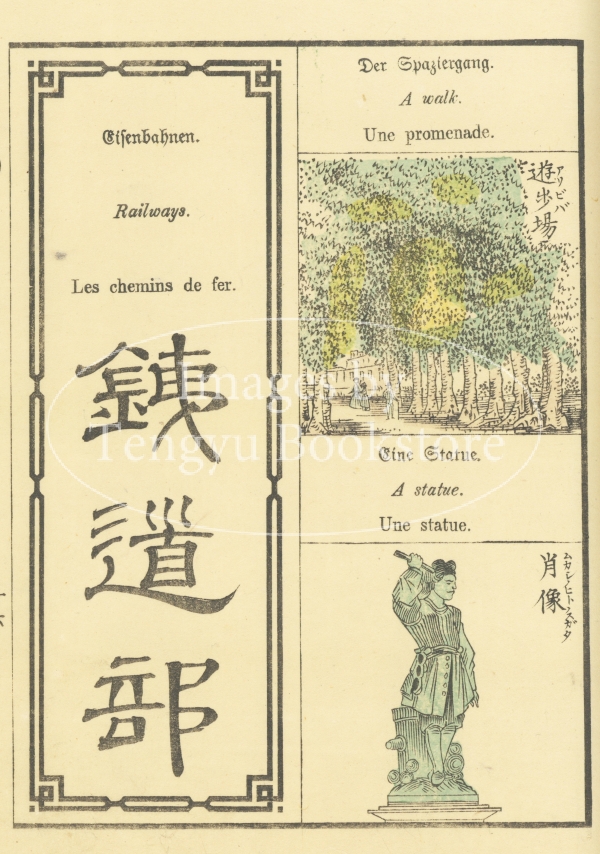 Eisenbahnen.
Railways.
Les chemins de fer.
銕
道
部
Der Spaziergang.
A walk.
Une promenade.
遊歩場
アソビバ
Eine Statue.
A statue.
Une statue.
肖像
ムカシノヒトノスガタ
Images by
Tengyu Bookstore